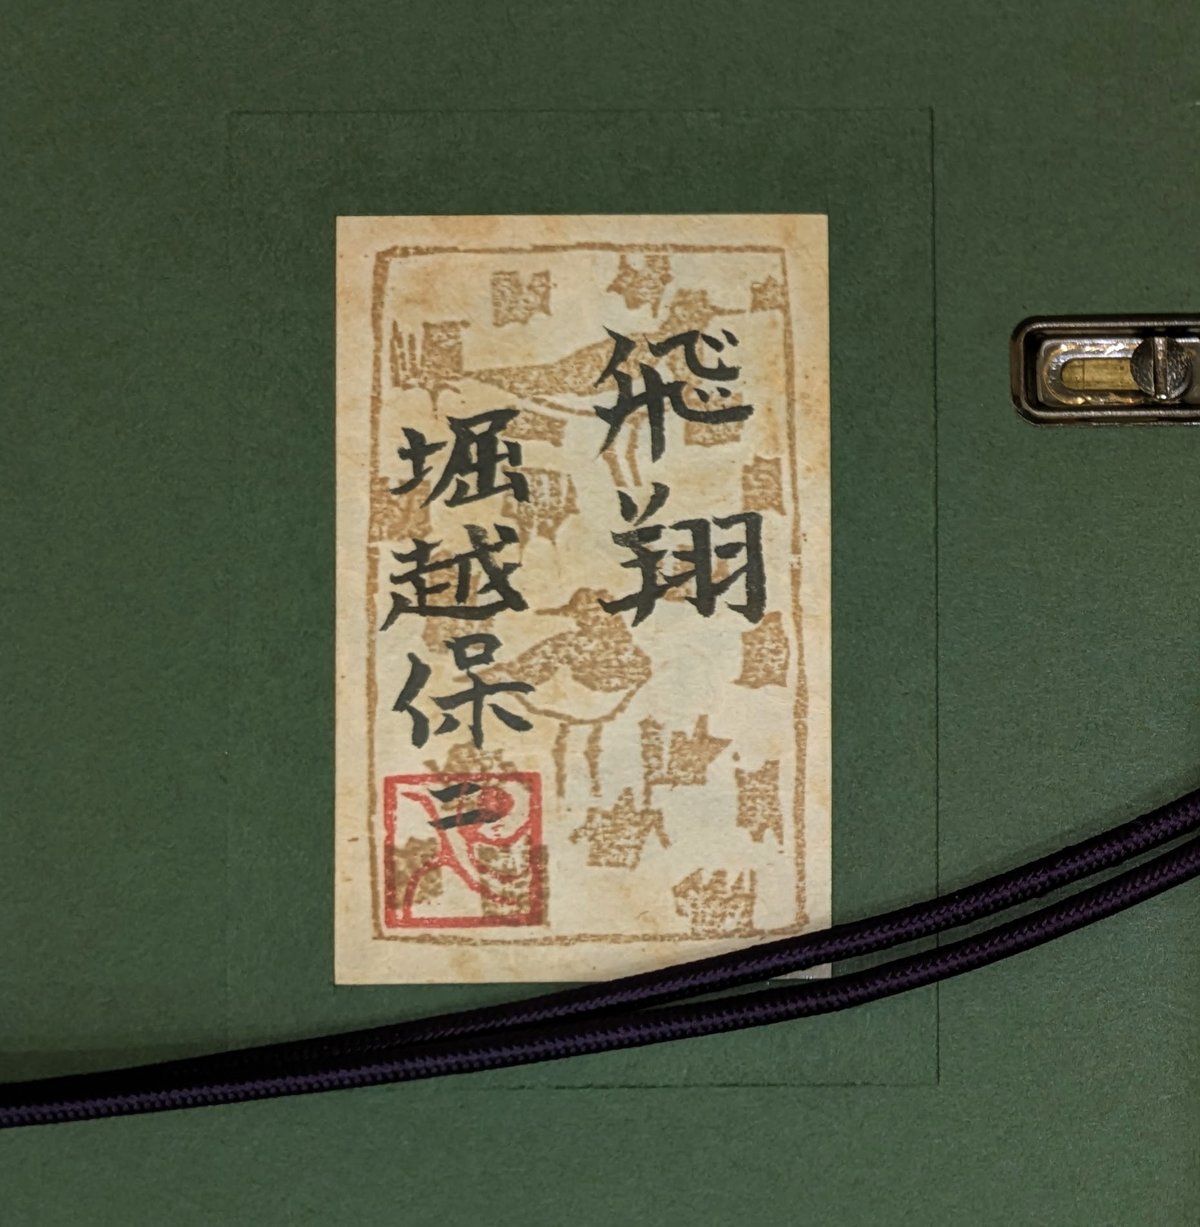 飛翔
堀越保二